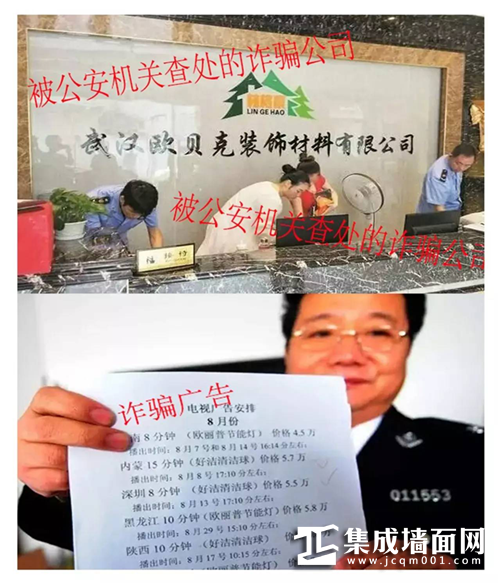 被公安机关查处的诈骗公司
LIN GE HAO
武汉欧贝克装饰材料有限公司
被公安机关查处的诈骗公司
诈骗广告
电视广告安排
8月份
南8分钟（欧丽普节能灯）价格4.5万
播出时间：8月7号和8月14号16:14分左右；
内蒙15分钟（好洁清洁球）价格5.7万
播出时间：8月8号17:10分左右；
深圳8分钟（好洁清洁球）价格5.5万
播出时间：8月13号17:10分左右；
黑龙江10分钟（欧丽普节能灯）价格5.8万
播出时间：8月29号15:10分左右；
陕西10分钟（好洁清洁球）价
播出时间：8月17号10:15分左右
Q11553
集成墙面网
www.jcqm001.com